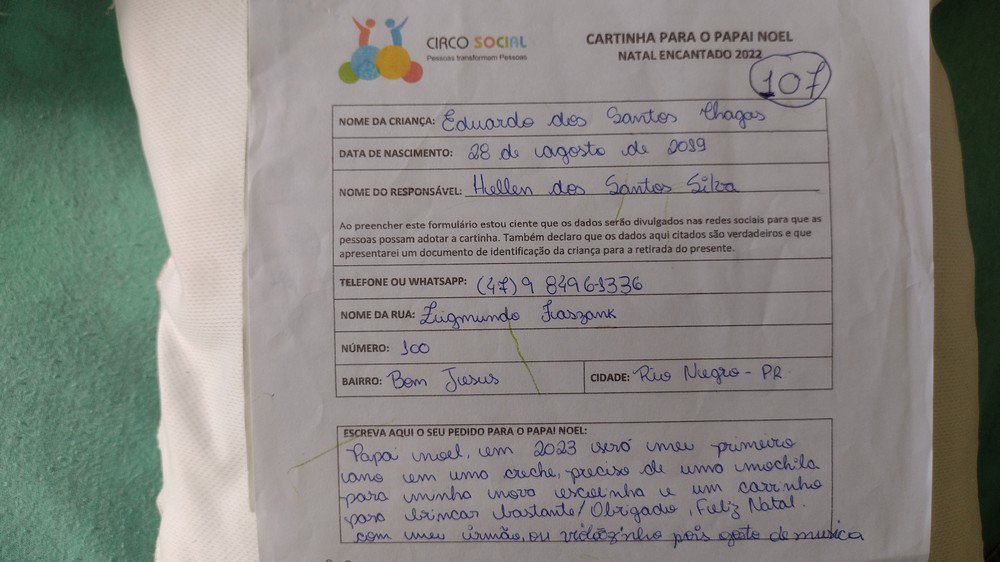 CIRCO SOCIAL
Pessoas transformam Pessoas
CARTINHA PARA O PAPAI NOEL
NATAL ENCANTADO 2022
107
NOME DA CRIANÇA: Eduardo dos Santos Chagas
DATA DE NASCIMENTO: 28 de agosto de 2019
NOME DO RESPONSÁVEL: Hellen dos Santos Silva
Ao preencher este formulário estou ciente que os dados serão divulgados nas redes sociais para que as
pessoas possam adotar a cartinha. Também declaro que os dados aqui citados são verdadeiros e que
apresentarei um documento de identificação da criança para a retirada do presente.
TELEFONE OU WHATSAPP: (47) 9 84961336
NOME DA RUA:
NÚMERO: 100
BAIRRO: Bom Jesus CIDADE: Rio Negro - PR
ESCREVA AQUI O SEU PEDIDO PARA O PAPAI NOEL:
Papai noel, em 2023 será meu primeiro
ano em uma creche, preciso de uma mochila
para minha nova escolinha e um carrinho
para brincar bastante! Obrigado, Feliz Natal.
com meu irmão, ou violãozinho pois gosto de musica